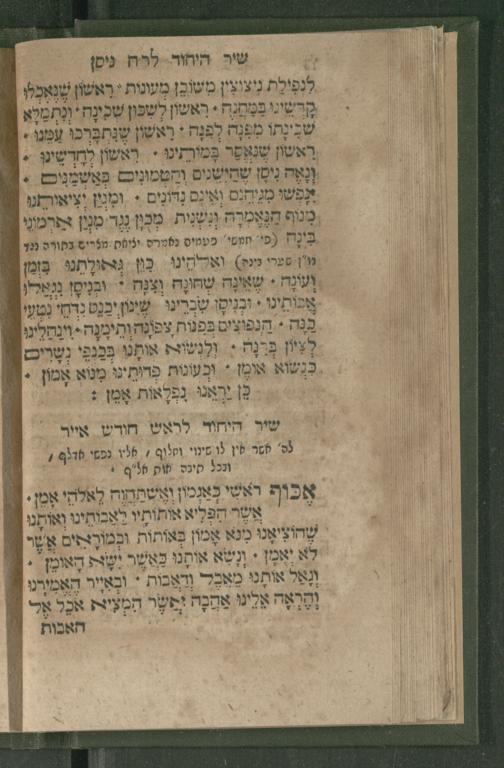 שיר היחוד לרח ניסן
לנפילת ניצוצין משוכן מעונות · ראשון שנאכלו
קדשינו במחנה · ראשון לשכון שכינה · ונתמלא
שכינתו מפנה לפנה · ראשון שנתברכו עמנו ·
ראשון שנאסר במותינו · ראשון לחדשינו ·
ונאה ניסן שהישנים והטמונים באשמנים ·
ינפשו מגיהנם ואינם נדונים · ומנין יציאותנו
מנוף הנאמרה ונשנית מכוון נגד מנין ארמוני
בינה (פי׳ חמשי׳ פעמים נאמרה יציאת מצרים בתורה נגד
נו״ן שערי בינה) ואלהינו כוון גאולתנו בזמן
ועונה · שאינה שחונה וצנה · ובניסן נגאלו
אבותינו · ובניסן שברינו שינון יכנס נדחי נטעי
כנה · הנפוצים בפנות צפונה ותימנה · וינהלינו
לציון ברנה · ולנשוא אותנו בכנפי נשרים
כנשוא אומן · וכעונות פדותינו מנוא אמון ·
כן יראנו נפלאות אמן :
שיר היחוד לראש חודש אייר
לה׳ אשר אין לו שינוי וחלוף , אליו נפשי אדלף ,
ובכל תיבה אות אל״ף ·
אכוף ראשי כאגמון ואשתחוה לאלהי אמן ·
אשר הפליא אותותיו לאבותינו ואותנו
שהוציאנו מנא אמון באותות ובמוראים אשר
לא יאמן · ונשא אותנו כאשר ישא האומן ·
וגאל אותנו מאבל ודאבות · ובאייר האמירנו
והראה אלינו אהבה יאשר המציא אכל אל
האבות